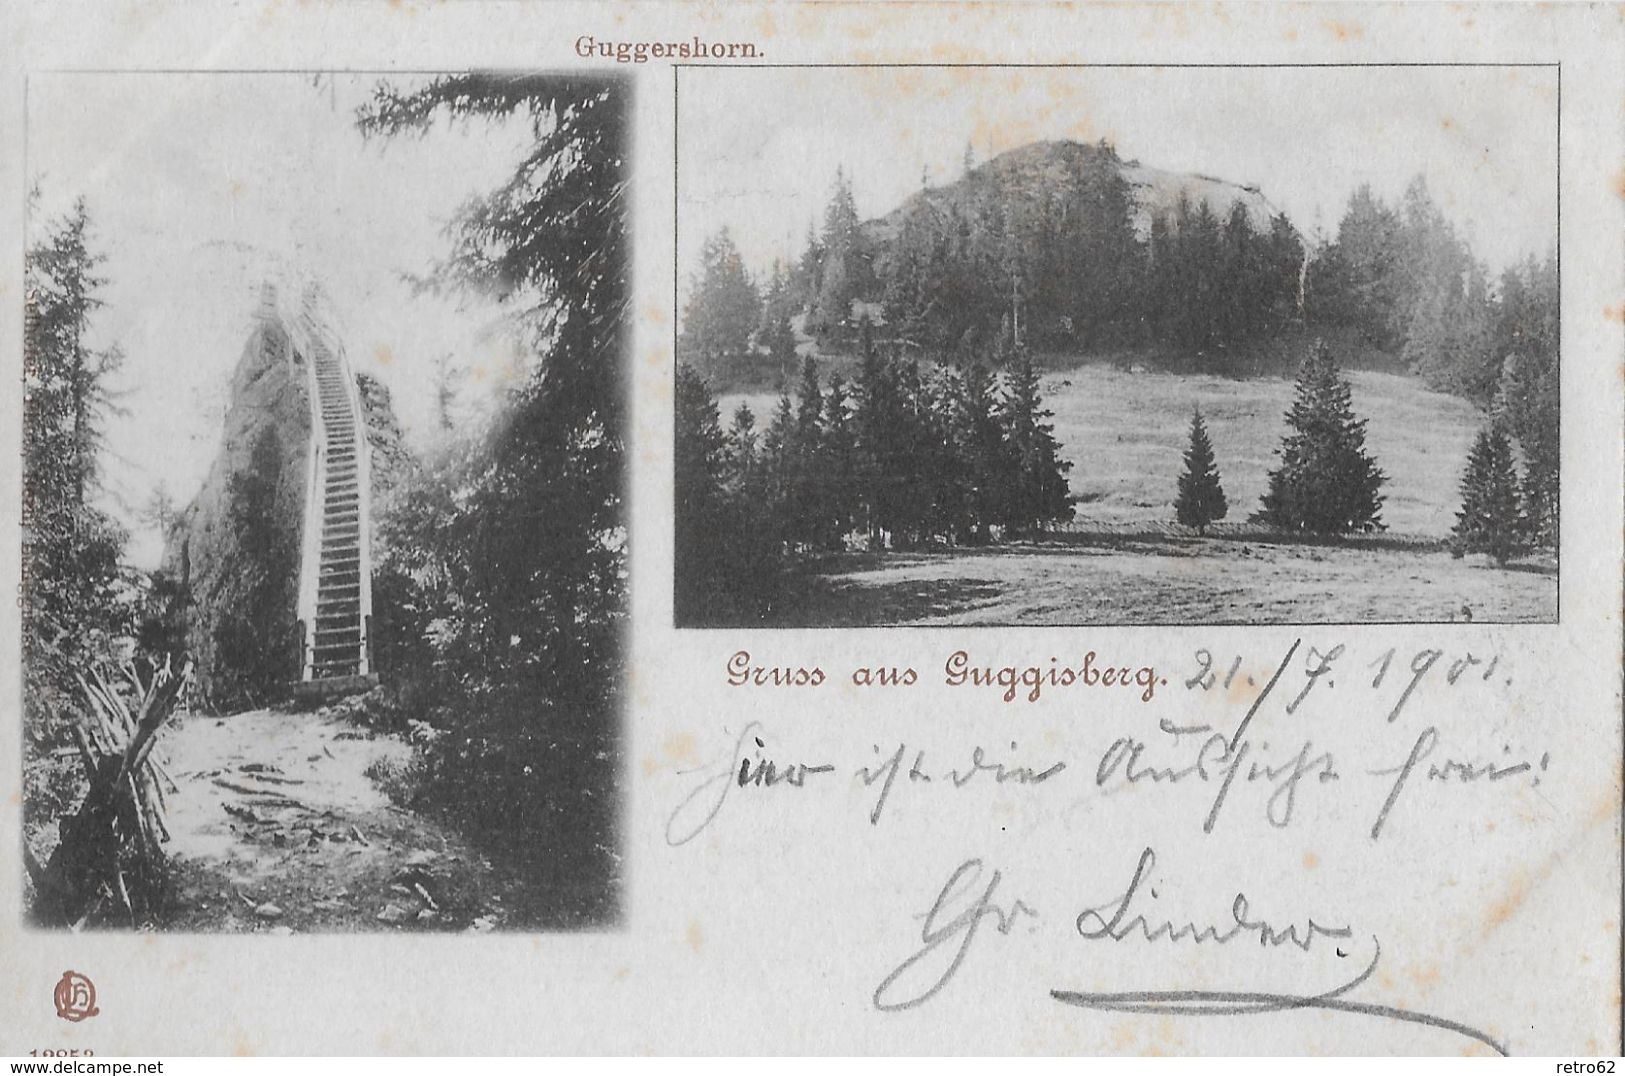 Guggershorn.
Gruss aus Guggisberg. 21./7. 1901.
Hier ist die Aussicht frei!
Gr. Linder.
12853
www.delcampe.net
retro62